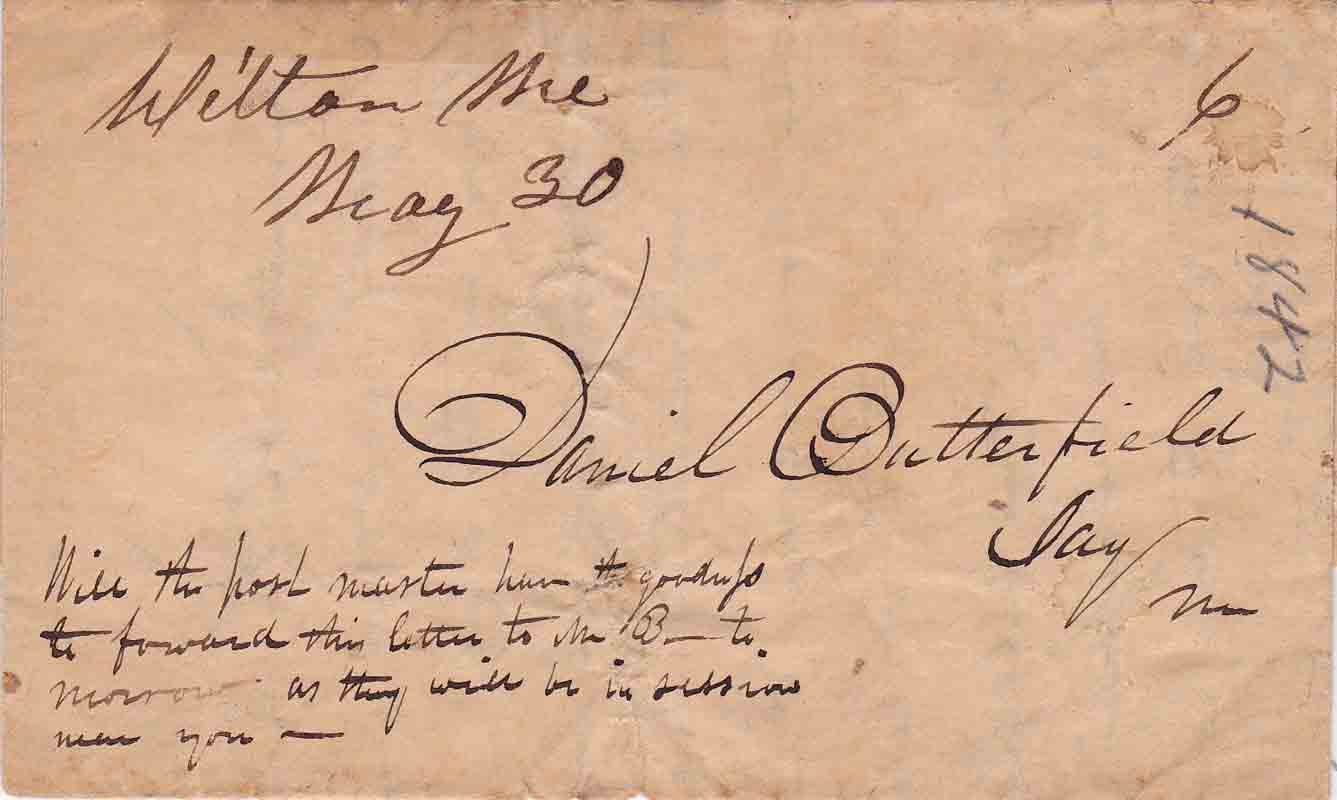 Wilton Me
May 30
6
1842
Daniel Butterfield
Jay
Me
Will the post master have the goodness
to forward this letter to Mr B— to
morrow as they will be in session
near you —